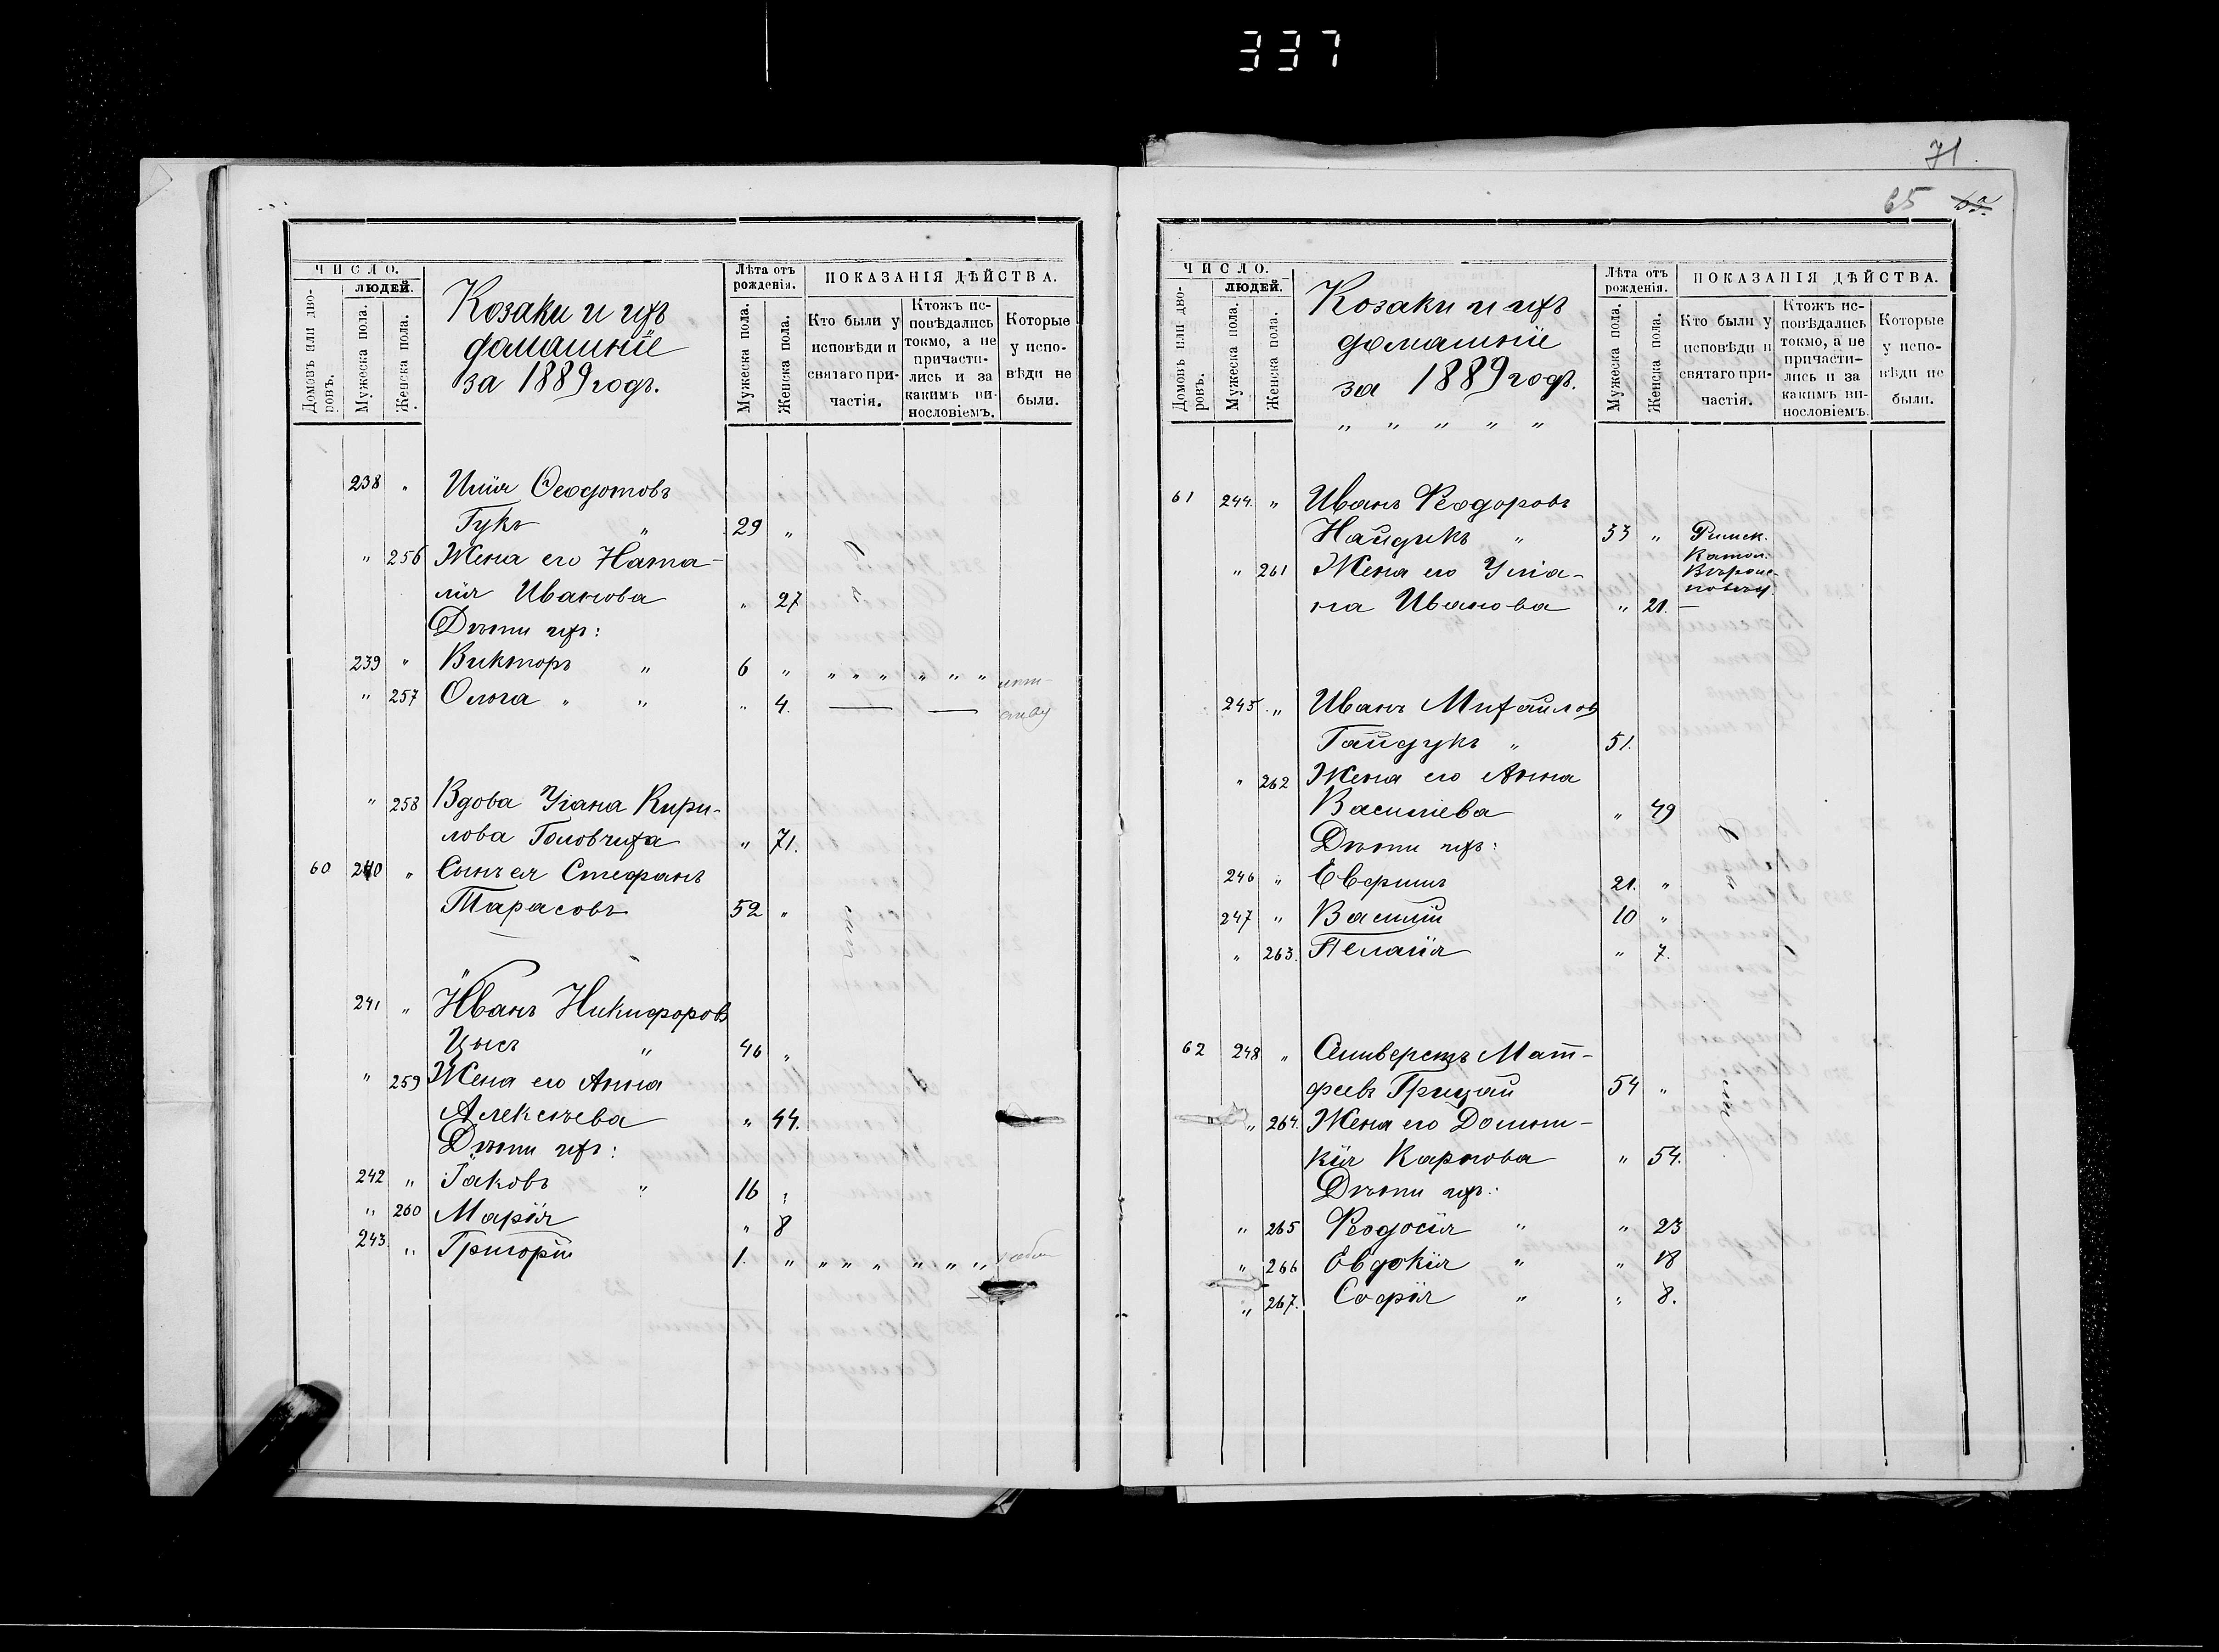 337
71.
65
ЧИСЛО.
ЛЮДЕЙ.
Домовъ или дворовъ.
Мужеска пола.
Женска пола.
Козаки и ихъ
домашніе
за 1889 годъ.
Лѣта отъ
рожденія.
Мужеска пола.
Женска пола.
ПОКАЗАНІЯ ДѢЙСТВА.
Кто были у
исповѣди и
святаго при-
частія.
Ктожъ ис-
повѣдались
токмо, а не
причасти-
лись и за
какимъ ви-
нословіемъ.
Которые
у испо-
вѣди не
были.
238 " Илія Ѳеодотовъ
Гукъ " 29 "
" 256 Жена его Ната-
лія Иванова " 27
Дѣти ихъ:
239 " Викторъ " 6 " " " " " " "
" 257 Ольга " " " 4.
" 258 Вдова Уліана Кири-
лова Головчиха " 71.
60 240 " Сынъ ея Стефанъ
Тарасовъ 52 "
241 " Иванъ Никифоровъ
Цысь " 46 "
" 259 Жена его Анна
Алексѣева " 44.
Дѣти ихъ:
242 " Іаковъ " 16 "
" 260 Марія " 8
243. " Григорій 1. " " " " " " "
ЧИСЛО.
ЛЮДЕЙ.
Домовъ или дворовъ.
Мужеска пола.
Женска пола.
Козаки и ихъ
домашніе
за 1889 годъ.
" " " " "
Лѣта отъ
рожденія.
Мужеска пола.
Женска пола.
ПОКАЗАНІЯ ДѢЙСТВА.
Кто были у
исповѣди и
святаго при-
частія.
Ктожъ ис-
повѣдались
токмо, а не
причасти-
лись и за
какимъ ви-
нословіемъ.
Которые
у испо-
вѣди не
были.
61 244. " Иванъ Ѳеодоровъ
Найдикъ " 53 " Римск.
Катол.
" 261 Жена его Уліа-
на Иванова " 21.
245 " Иванъ Михайловъ
Гайдукъ " 51.
" 262 Жена его Анна
Василіева " 49
Дѣти ихъ:
246 " Евфимъ 21. "
247 " Василій 10 "
" 263. Пелагія " 7.
62 248 " Силиверстъ Мат-
фѣевъ Грицай 54 "
" 264. Жена его Домни-
кія Карпова " 54.
Дѣти ихъ:
" 265 Ѳеодосія " " 23
" 266 Евдокія " " 18
" 267. Софія " " 8.